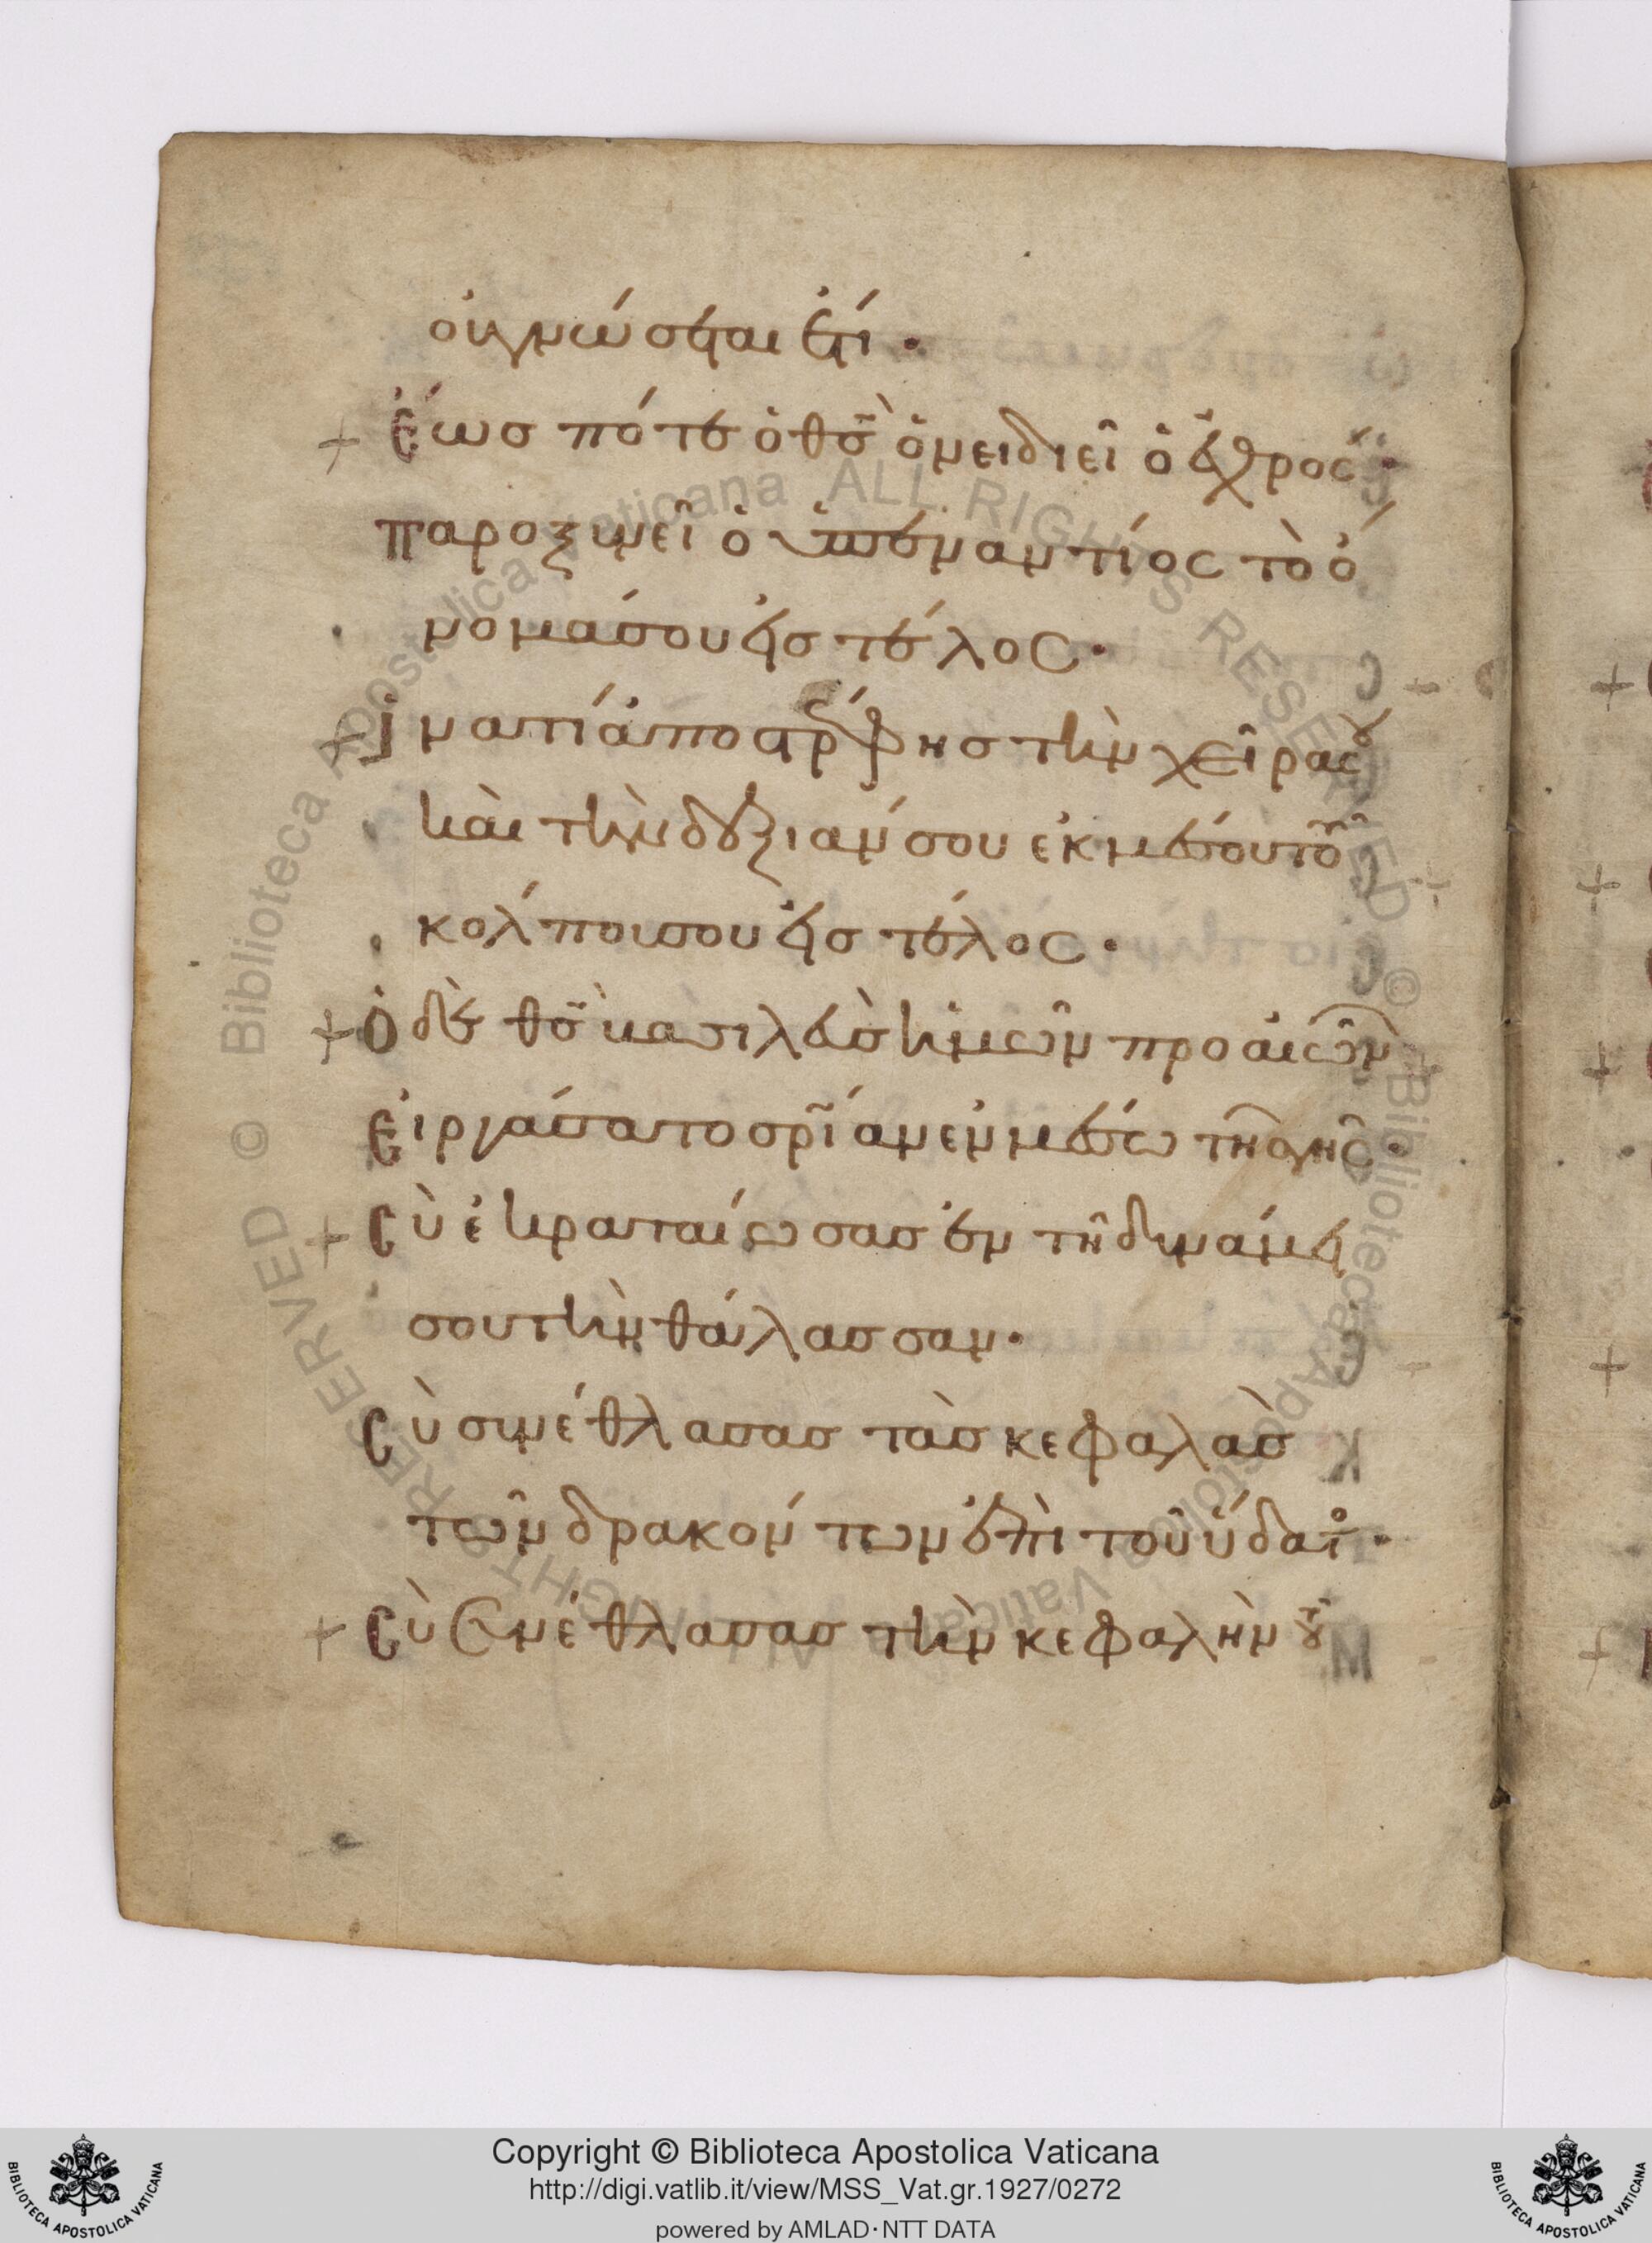 οὐ γνώσεται ἔτι ·
+ ἕως πότε ὁ θς̄ ὀνειδιεῖ ὁ ἐχθρός ·
παροξυνεῖ ὁ ὑπεναντίος τὸ ὄ
νομά σου εἰς τέλος ·
+ ἱνατί ἀποστρέφης τὴν χεῖρα σου
καὶ τὴν δεξιάν σου ἐκ μέσου τοῦ
κόλπου σου εἰς τέλος ·
+ ὁ δὲ θς̄ βασιλεὺς ἡμῶν πρὸ αἰώνων
εἰργάσατο σρ̄ίαν ἐν μέσω τῆς γῆς ·
+ σὺ ἐκραταίωσας ἐν τῆ δυνάμει
σου τὴν θάλασσαν ·
σὺ συνέθλασας τὰς κεφαλὰς
τῶν δρακόντων ἐπὶ τοῦ ὕδατος ·
+ σὺ συνέθλασας τὴν κεφαλὴν τοῦ
Biblioteca Apostolica Vaticana ALL RIGHTS RESERVED ©
Copyright © Biblioteca Apostolica Vaticana
http://digi.vatlib.it/view/MSS_Vat.gr.1927/0272
powered by AMLAD·NTT DATA
BIBLIOTECA APOSTOLICA VATICANA
BIBLIOTECA APOSTOLICA VATICANA